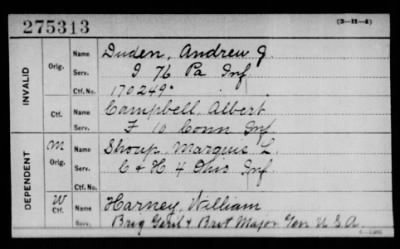 275313
(3-11-4)
INVALID
Orig.
Name Duden, Andrew J.
Serv. I 76 Pa Inf
Ctf. No. 170249.
Ctf.
Name Campbell, Albert
Serv. F 10 Conn Inf
DEPENDENT
M
Orig.
Name Shoup, Marquis L.
Serv. C & H 4 Ohio Inf
Ctf. No.
W
Ctf.
Name Harney, William
Serv. Brig Genl & Brvt Major Gen U.S.A.